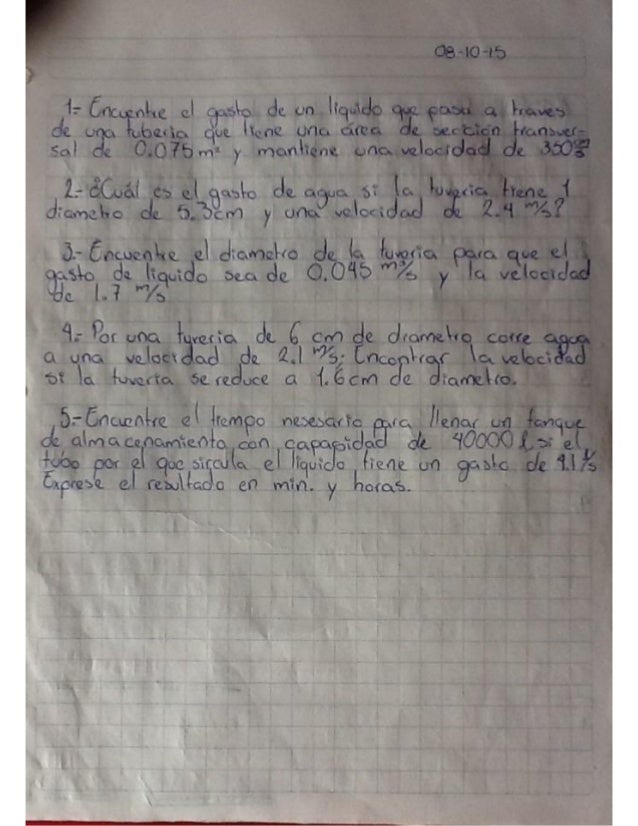 08-10-15
1- Encuentre el gasto de un liquido que pasa a traves
de una tuberia que tiene una area de sección transver-
sal de 0.075 m² y mantiene una velocidad de 350
2- ¿Cuál es el gasto de agua si la tuveria tiene 1
diametro de 5.3cm y una velocidad de 2.4 m/s?
3.- Encuentre el diametro de la tuveria para que el
gasto de liquido sea de 0.045 m³/s y la velocidad
de 1.7 m/s
4.- Por una tuveria de 6 cm de diametro corre agua
a una velocidad de 2.1 m/s. Encontrar la velocidad
si la tuveria se reduce a 1.6cm de diametro.
5.- Encuentre el tiempo nesesario para llenar un tanque
de almacenamiento con capacidad de 40000 l si el
tubo por el que sircula el liquido tiene un gasto de l/s
Exprese el resultado en min. y horas.